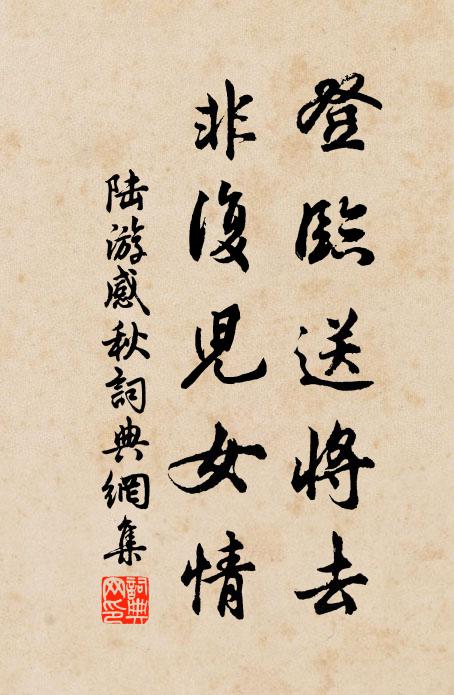 登臨送將去
非復兒女情
陆游感秋詞典網集
詞典网印